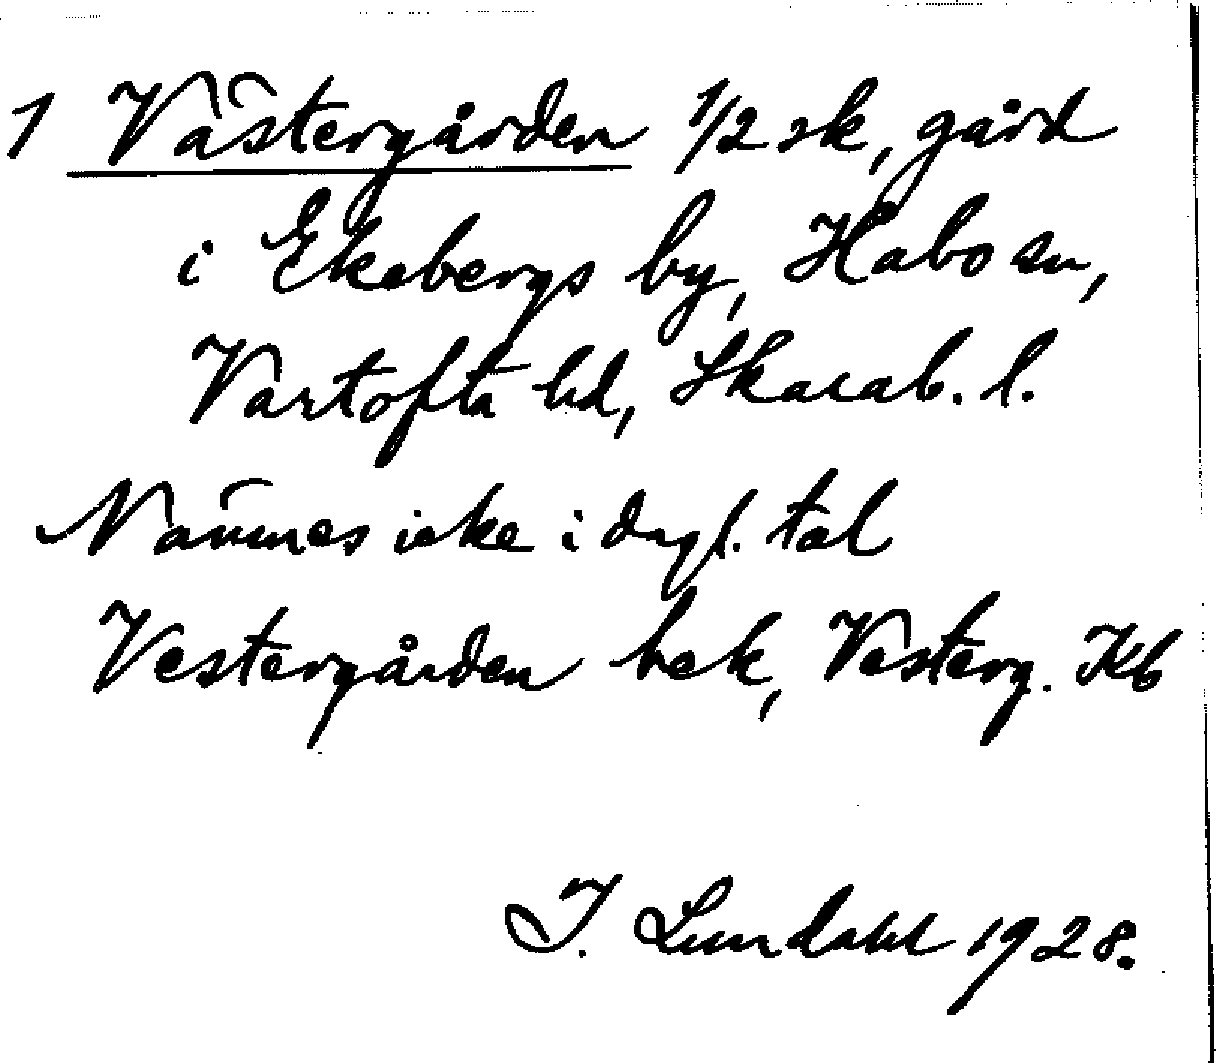 1 Västergården 1/2 sk, gård
i Ekebergs by, Habo sn,
Vartofta hd, Skarab. l.
Nämnes icke i dagl. tal
Vestergården bek, Vesterg. Kb
I. Lundahl 1928.